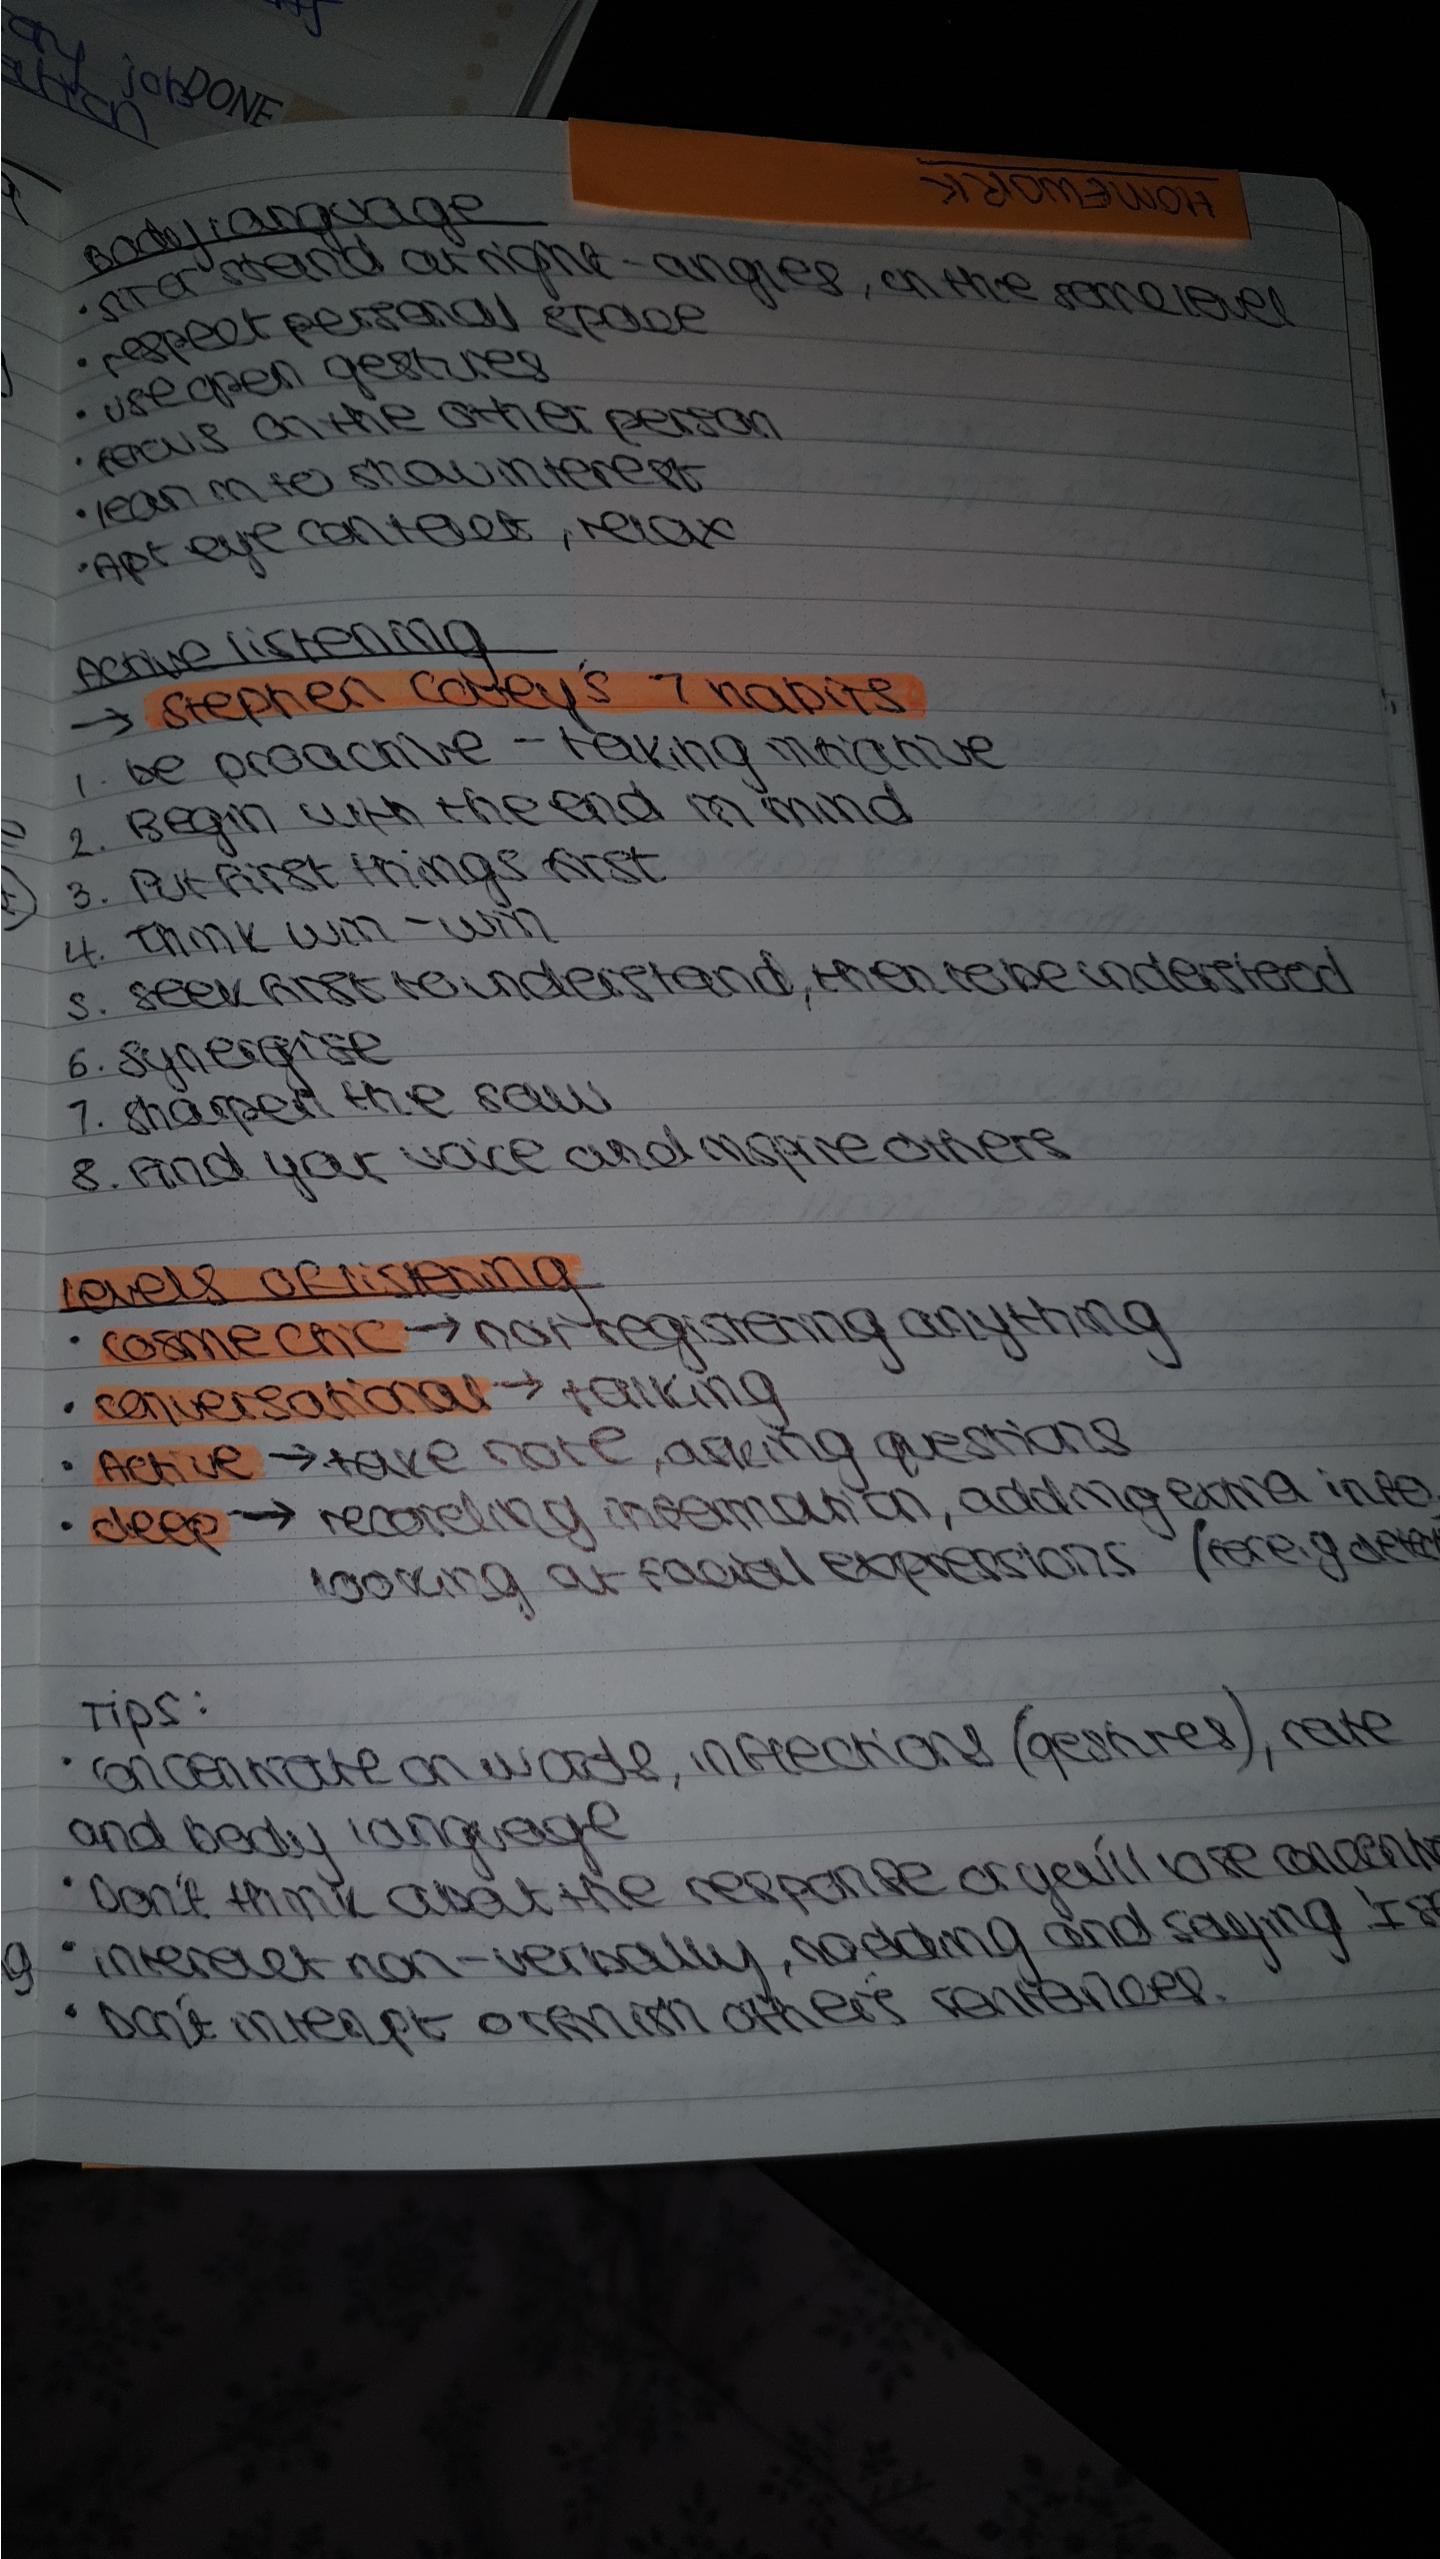 any job DONE
HOMEWORK
Body language
• sit or stand at right-angles, on the same level
• respect personal space
• use open gestures
• focus on the other person
• lean in to show interest
• Apt eye contact, relax
Active listening
→ Stephen Covey's 7 habits
1. be proactive - taking initiative
2. Begin with the end in mind
3. Put first things first
4. Think win-win
5. seek first to understand, then to be understood
6. synergise
7. sharpen the saw
8. Find your voice and inspire others
Levels of listening
• cosmetic → not registering anything
• conversational → talking
• Active → take note, asking questions
• deep → recording information, adding extra info.
looking at facial expressions (for e.g
Tips:
• concentrate on words, inflections (gestures), rate
and body language
• Don't think about the response or you'll lose
• interact non-verbally, nodding and saying 'I
• Don't interupt or finish other's sentences.